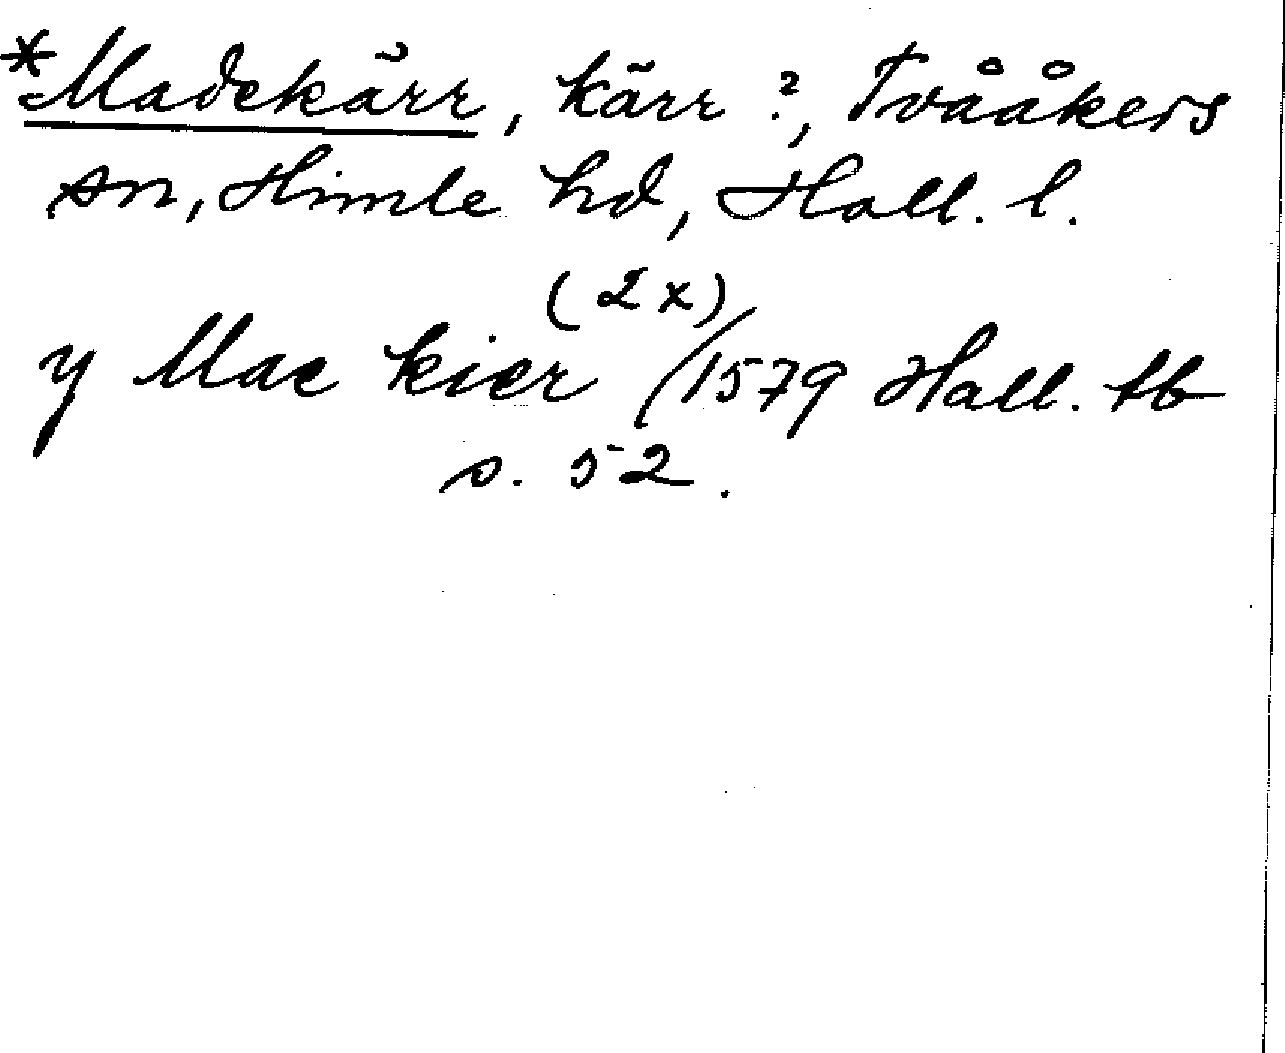 *Madekärr, kärr?, Tvååkers
sn, Himle hd, Hall. l.
(2x)
y Mae kier /1579 Hall. tb
s. 52.